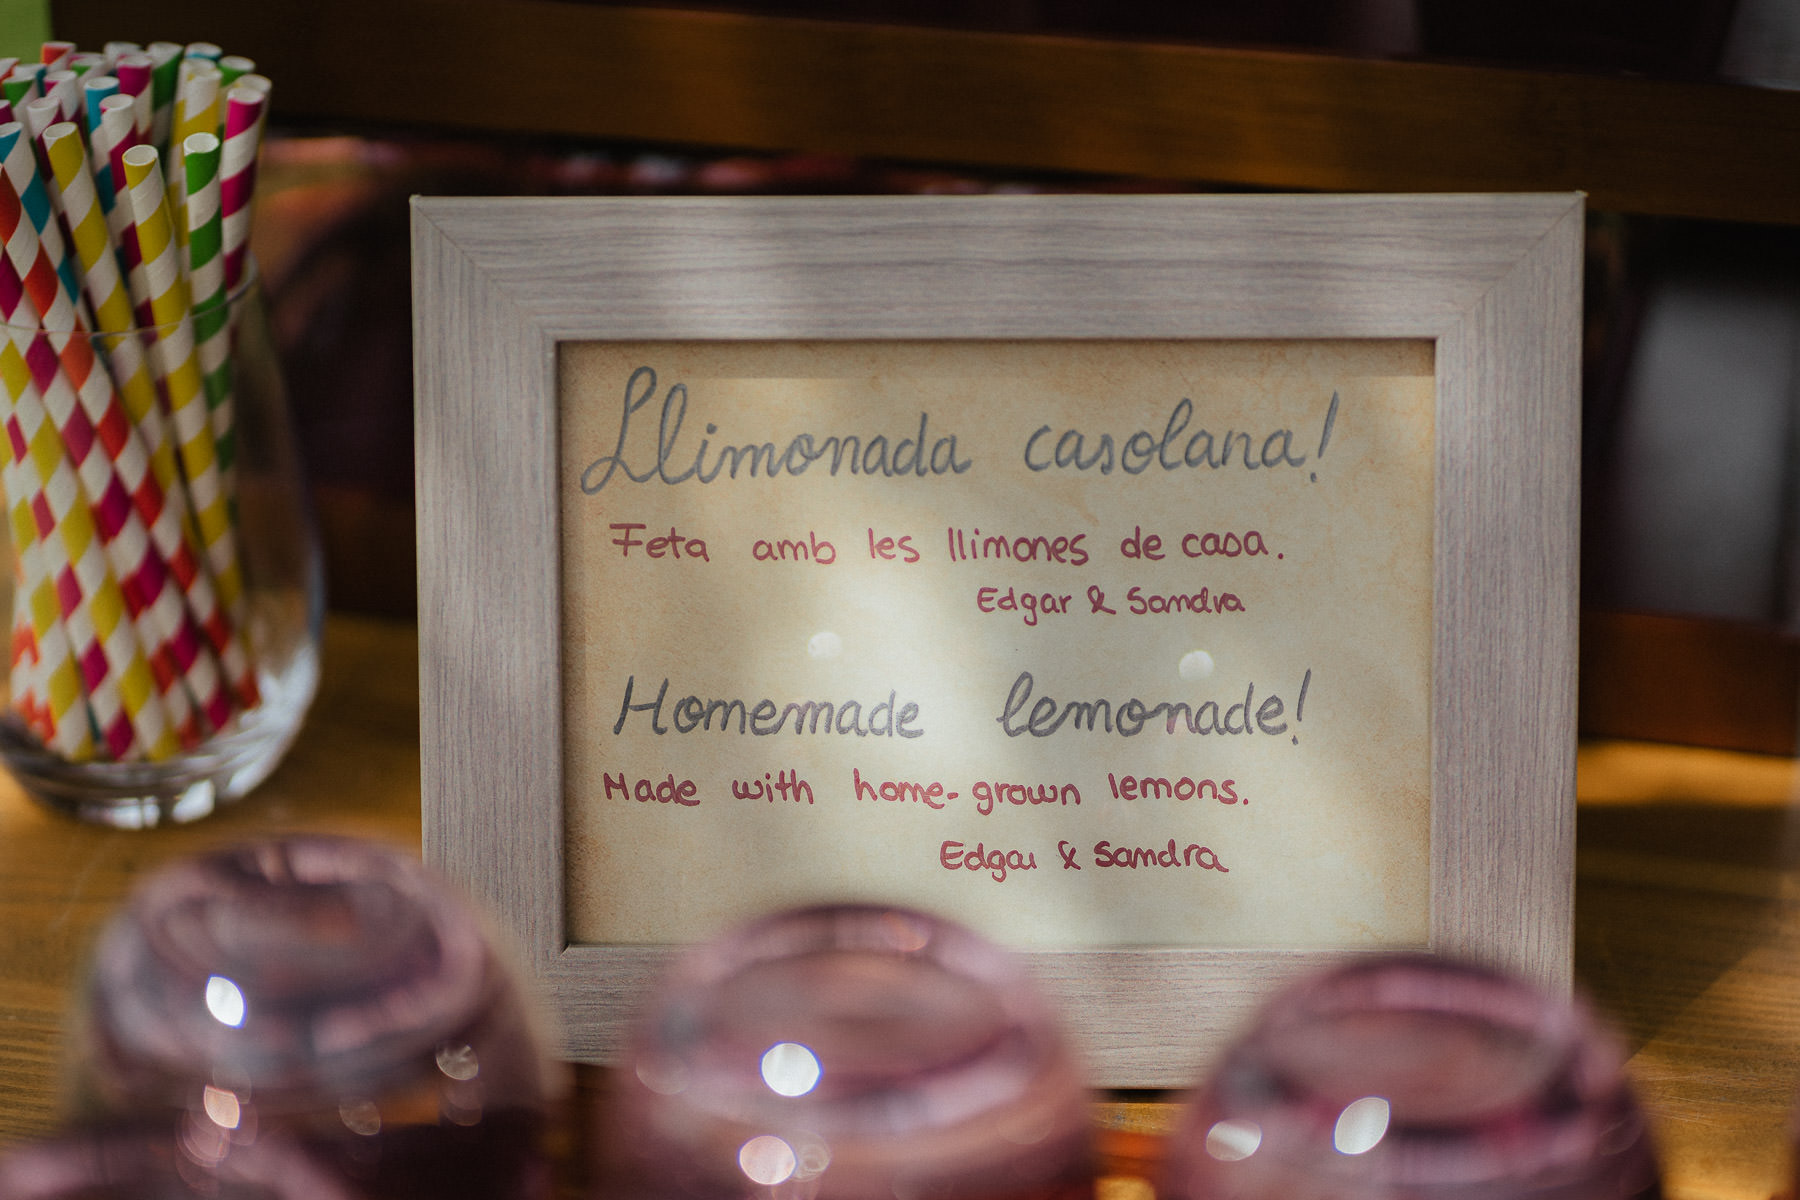 Llimonada casolana!
Feta amb les llimones de casa.
Edgar & Sandra
Homemade lemonade!
Made with home-grown lemons.
Edgar & Sandra